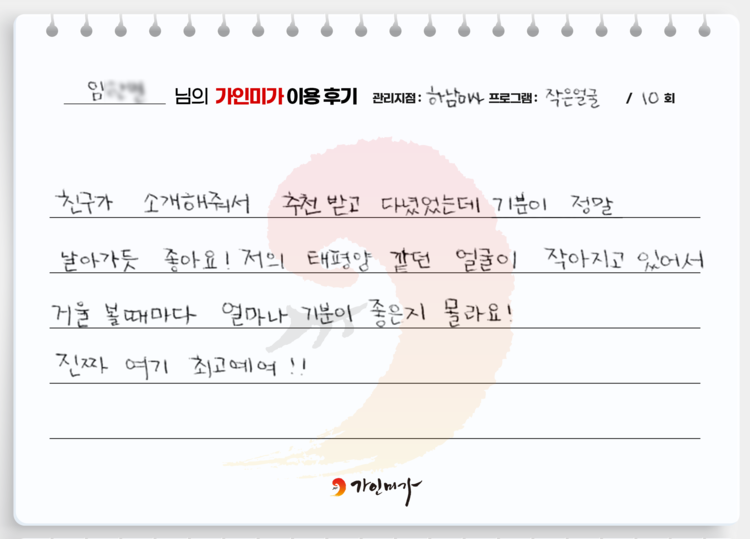 임 님의 가인미가 이용 후기 관리지점 : 하남미사 프로그램 : 작은얼굴 / 10 회
친구가 소개해줘서 추천 받고 다녔었는데 기분이 정말
날아가듯 좋아요! 저의 태평양 같던 얼굴이 작아지고 있어서
거울 볼때마다 얼마나 기분이 좋은지 몰라요!
진짜 여기 최고예여!!
가인미가